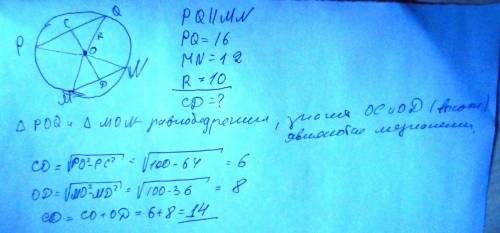 C
Q
P
R
O
N
M
D
PQ || MN
PQ = 16
MN = 12
R = 10
CD = ?
△ POQ и △ MON равнобедренны, значит OC и OD (высоты)
являются медианами
CO = √PO²-PC² = √100-64 = 6
OD = √MO²-MD² = √100-36 = 8
CD = CO + OD = 6+8 = 14